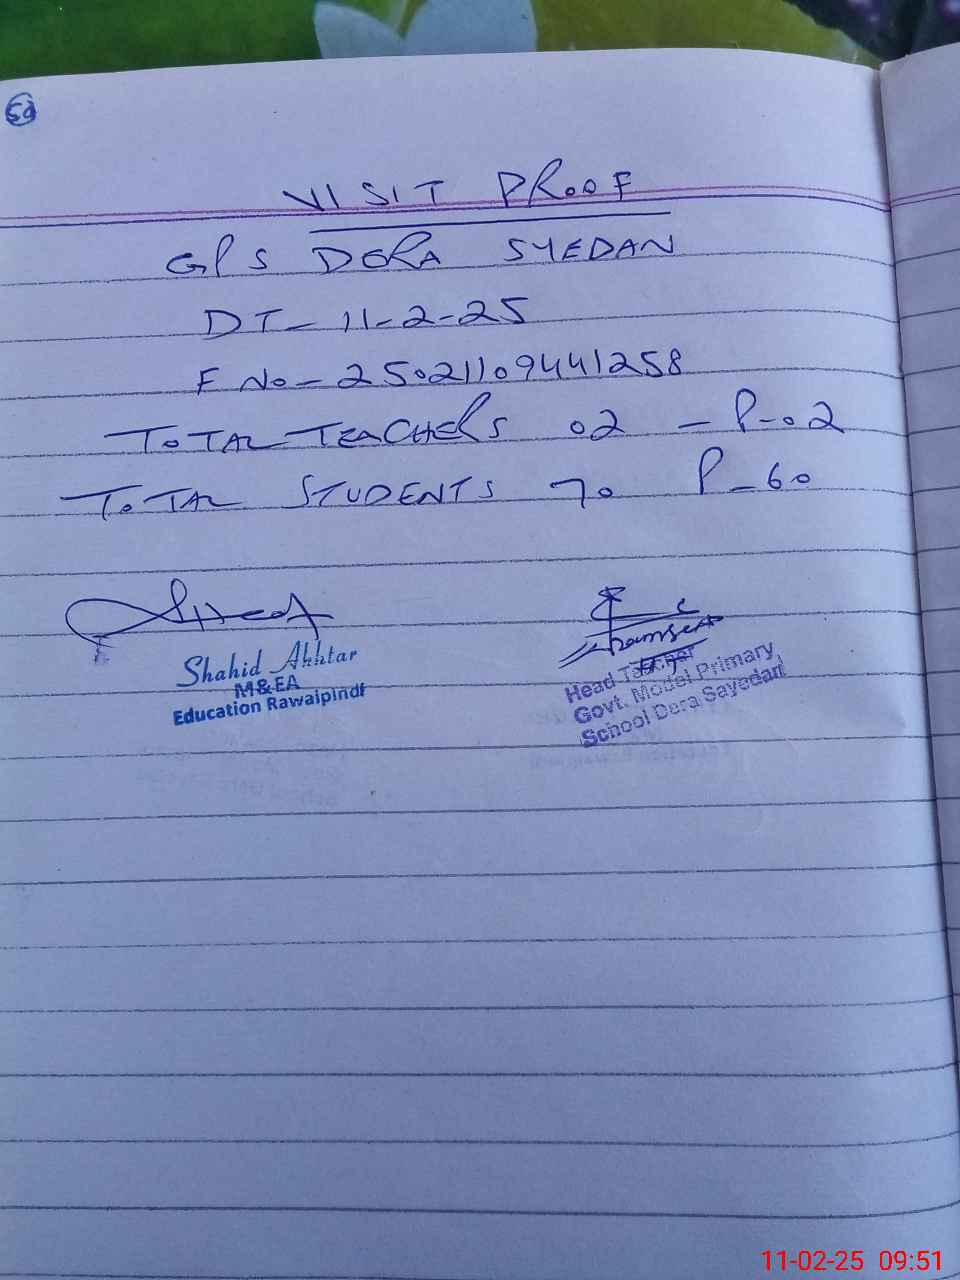 VISIT PROOF
GPS DERA SYEDAN
DT- 11-2-25
F No- 25021109441258
TOTAL TEACHERS 02 - P-02
TOTAL STUDENTS 70 P-60
Shahid Akhtar
M&EA
Education Rawalpindi
Head Teacher
Govt. Model Primary
School Dera Sayedan
11-02-25 09:51